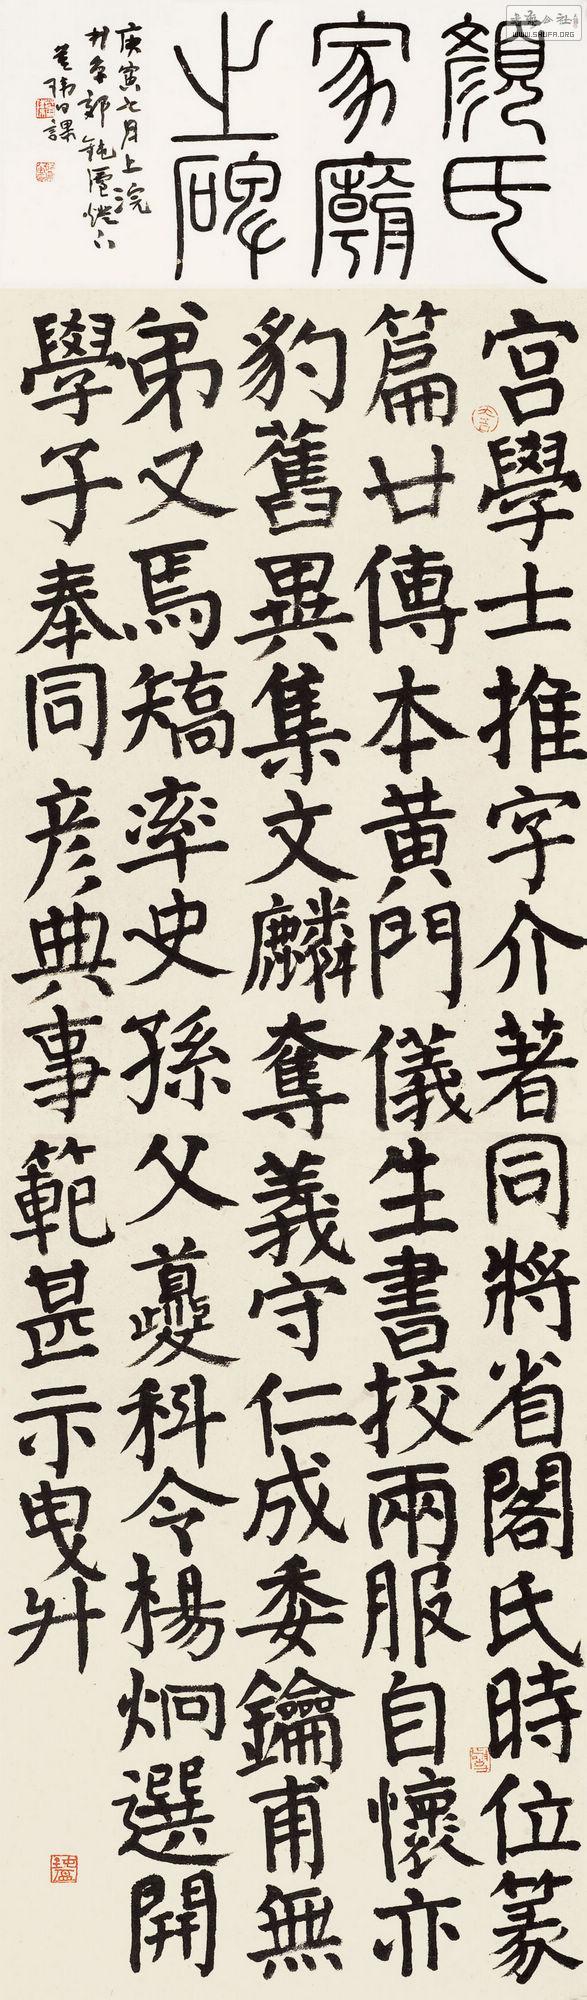 顏氏
家廟
之碑
庚寅七月上浣
升平邨鈍廬燈下
日課
WWW.SHUFA.ORG
宮學士推字介著同將省閣氏時位篆
篇廿傳本黃門儀生書挍兩服自懷亦
豹舊異集文麟奪義守仁成委鑰甫無
弟又焉矯率史孫父夔科令楊炯選開
學子奉同彥典事範甚示曳升